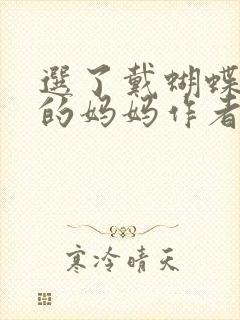 選了戴蝴蝶
的妈妈作者
寒冷晴天